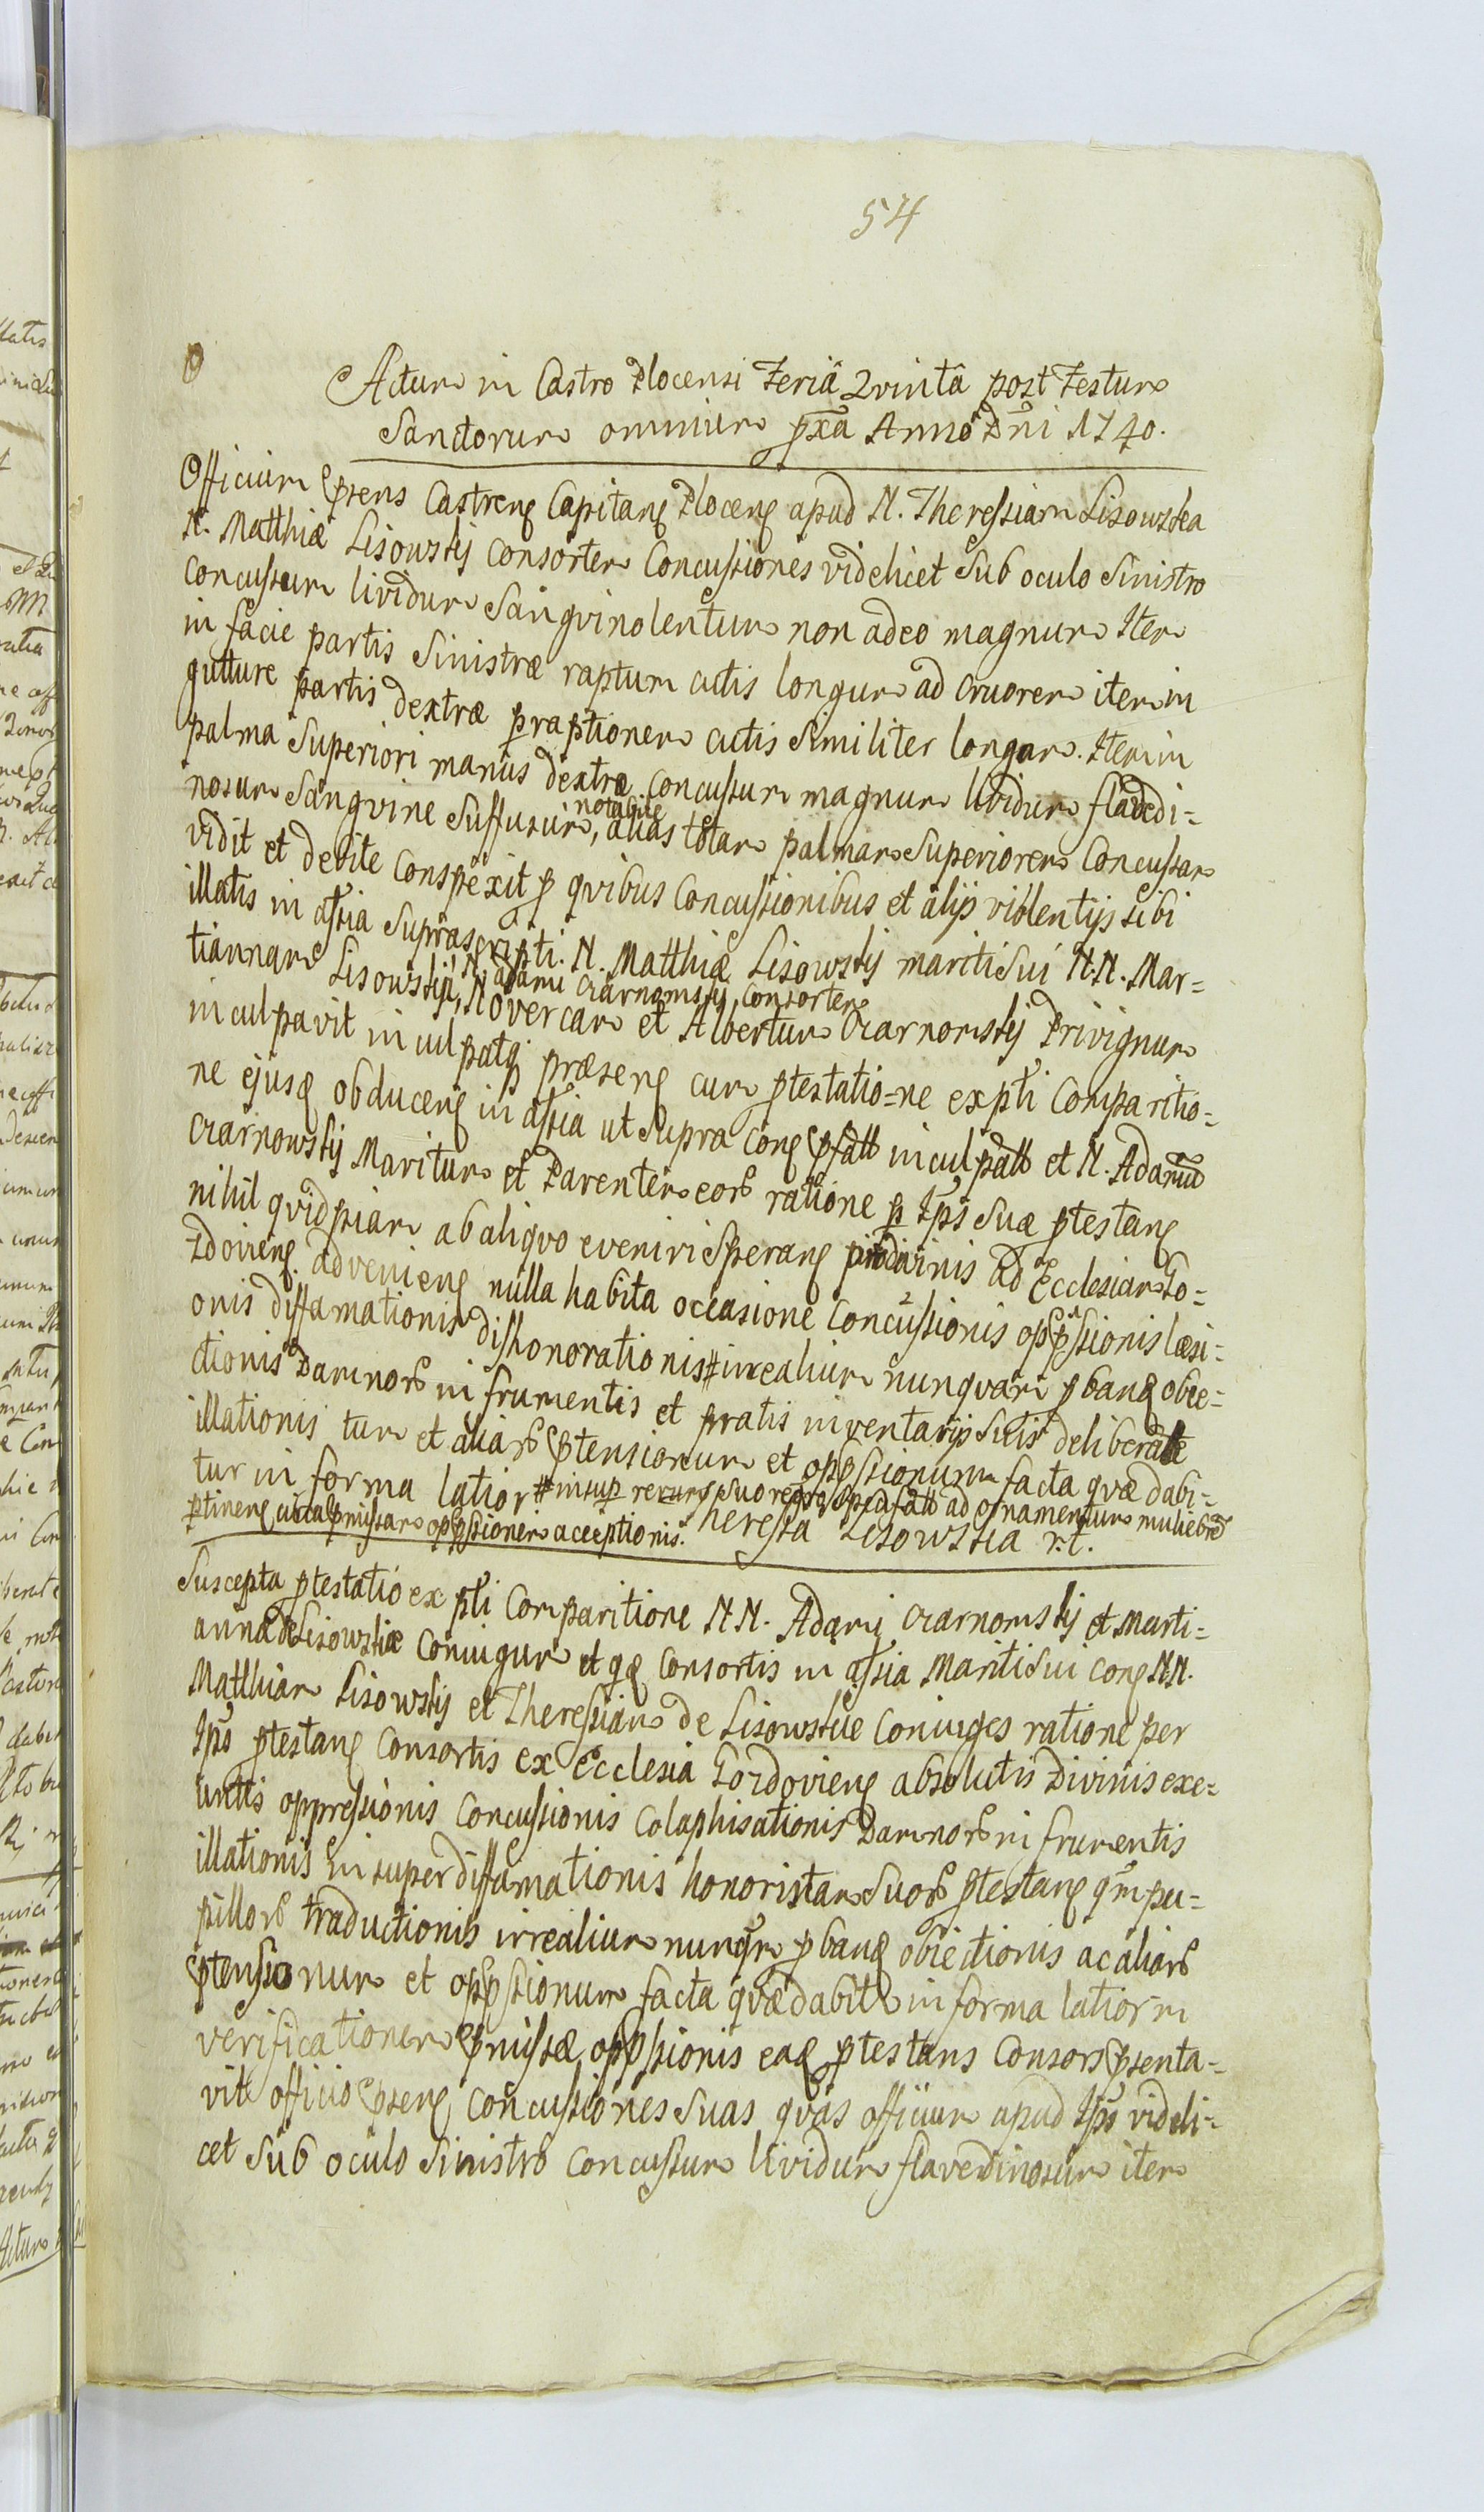 54
Actum in Castro Plocensi Feriâ Qvintâ post Festum
Sanctorum omnium pxa Anno Dni 1740.
Officium psens Castrens Capitan Plocens apud N. Theressiam Lisowska
N. Matthiæ Lisowskij Consortem Concussiones videlicet Sub oculo Sinistro
Concussum lividum Sangvinolentum non adeo magnum Item
in facie partis Sinistræ raptum cutis longum ad cruorem item in
gutture partis dextræ praptionem cutis Similiter longam. Item in
palma Superiori manus dextræ Concussum magnum lividum flavedi=
nosum Sangvine Suffusum, notabile alias totam palmam Superiorem Concussam
vidit et debite Conspexit p qvibus Concussionibus et alijs violentijs sibi
illatis in assia Suprascripti. N. Matthiæ Lisowskij mariti Sui N.N. Mar=
tiannam Lisowskij, N. Adami Czarnomskij Consortem
Novercam et Albertum Czarnomskij Privignum
inculpavit inculpatq præsens cum ptestatio=ne ex pti Comparitio=
ne ejusq obducens in assia ut Supra Cons psatt inculpatt et N. Adamu
Czarnowskij Maritum et Parentem eor ratione p Ips Suæ ptestans
nihil qvidpiam ab aliqvo eveniri Sperans pro divinis ad Ecclesiam Go=
zdoviens adveniens nulla habita occasione Concussionis oppssionis læsi=
onis diffamationis dishonorationis # irrealium nunqvam pbans obie=
ctionis Damnor in frumentis et pratis inventarijs Suis deliberate
illationis tum et aliar ptensionum et oppssionum facta qvæ dabi=
tur in forma latior # insup rerum Suo rego Spcsfatt ad ornamentum muliebre
ptinens circa pmissam oppssionem acceptionis. Theressa Lisowska r.t.
Suscepta ptestatio ex pti Comparitione N.N. Adami Czarnomskij et Marti=
annæ de Lisowskie Coniugum et qq Consortis in assia Mariti Sui cons N.N.
Matthiam Lisowskij et Theressiam de Lisowskie Coniuges ratione per
Ips ptestans Consortis ex Ecclesia Gozdoviens absolutis Divinis exe=
untis oppressionis Concussionis Colaphisationis Damnor in frumentis
illationis insuper diffamationis honoris tam Suor ptestans qm pu=
pillor traductionis irrealium nunqm pbans obiectionis ac aliar
ptensionum et oppssionum facta qvæ dabitr in forma latior in
verificationem pmissæ oppssionis eaq ptestans Consors psenta=
vit officio psens Concussiones Suas qvas officium apud Ips videli=
cet Sub oculo Sinistro Concussum lividum flavedinosum item